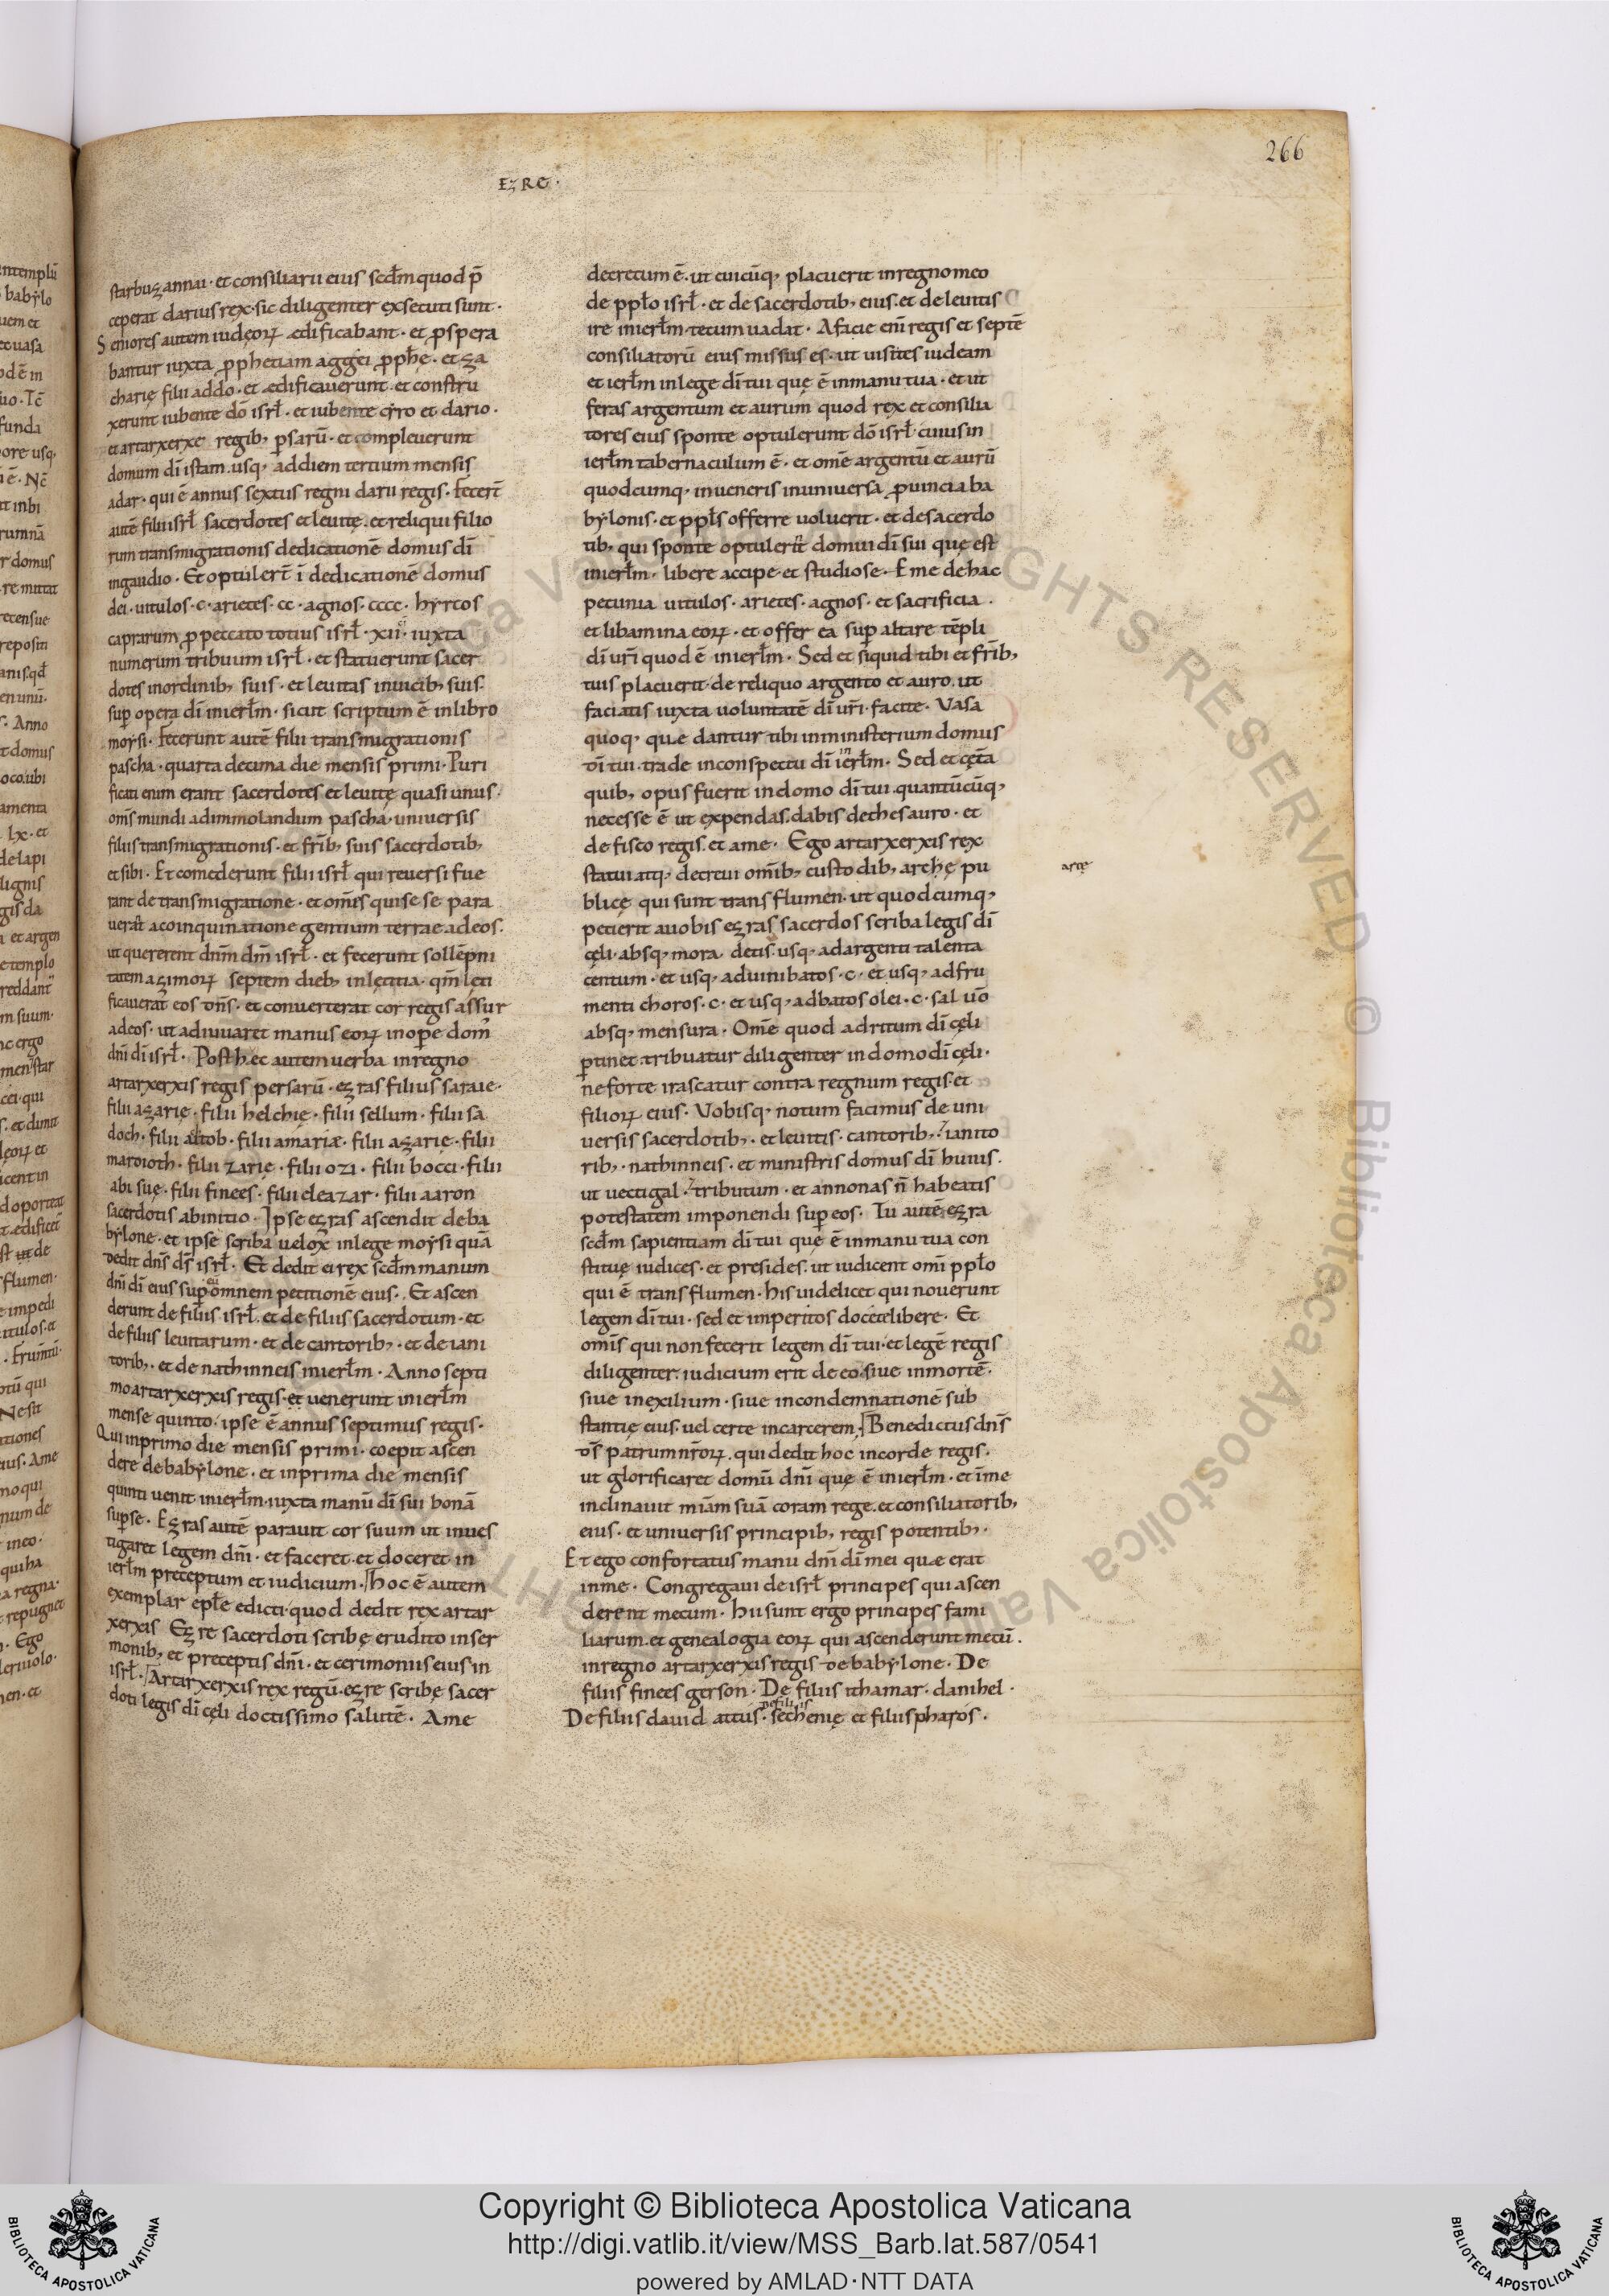 266
EZRE·
starbuzannai· et consiliarii eius scđm quod p̄
ceperat darius rex· sic diligenter exsecuti sunt·
Seniores autem iudęoꝝ ædificabant· et ꝓspera
bantur iuxta ꝓphetiam aggęi ꝓphę̄· et za
charię filii addo· et ædificauerunt· et constru
xerunt iubente dō isrł· et iubente cẏro et dario·
et artarxerxe regib; ꝑsarū· et compleuerunt
domum dī istam· usq; ad diem tertium mensis
adar· qui ē annus sextus regni darii regis· Fecer̄t
autē filii isrł sacerdotes et leuitę· et reliqui filio
rum transmigrationis dedicationē domus dī
in gaudio· Et optuler̄t ī dedicationē domus
dei· uitulos· c· arietes· cc· agnos· cccc· hyrcos
caprarum ꝓ peccato totius isrł· xii· iuxta
numerum tribuum isrł· et statuerunt sacer
dotes in ordinib; suis· et leuitas in uicib; suis·
suꝑ opera dī in ierłm· sicut scriptum ē in libro
moysi· Fecerunt autē filii transmigrationis
pascha· quarta decima die mensis primi· Puri
ficati enim erant sacerdotes et leuitę quasi unus·
om̄s mundi ad immolandum pascha· uniuersis
filiis transmigrationis· et fr̄ib; suis sacerdotib;
et sibi· Et comederunt filii isrł qui reuersi fue
rant de transmigratione· et om̄s qui se se para
uerañt a coinquinatione gentium terrae ad eos·
ut quererent dn̄m dm̄ isrł· et fecerunt sollēpni
tatem azimoꝝ septem dieb; in lętitia· qm̄ lęti
ficauerat eos dn̄s· et conuerterat cor regis assur
ad eos· ut adiuuaret manus eoꝝ in oꝑe dom̄
dn̄i dī isrł· Post hęc autem uerba in regno
artarxerxis regis persarū· ezras filius saraie·
filii azarię· filii helchię· filii sellum· filii sa
doch· filii achitob· filii amariæ· filii azarię· filii
maroioth· filii zarię· filii ozi· filii bocci· filii
abisuę· filii finees· filii eleazar· filii aaron
sacerdotis ab initio· Ipse ezras ascendit de ba
bylone· et ipse scriba uelox in lege moysi quā
dedit dn̄s ds̄ isrł· Et dedit ei rex scđm manum
dn̄i dī eius suꝑ eū omnem petitionē eius· Et ascen
derunt de filiis isrł· et de filiis sacerdotum· et
de filiis leuitarum· et de cantorib;· et de iani
torib;· et de nathinneis in ierłm· Anno septi
mo artarxerxis regis· et uenerunt in ierłm
mense quinto· ipse ē annus septimus regis·
Qui in primo die mensis primi· coepit ascen
dere de babylone· et in prima die mensis
quinti uenit in ierłm· iuxta manū dī sui bonā
suꝑ se· Ezras autē parauit cor suum ut inues
tigaret legem dn̄i· et faceret· et doceret in
ierłm preceptum et iudicium· hoc ē autem
exemplar epłe edicti· quod dedit rex artar
xerxis Ezre sacerdoti scribę erudito in ser
monib; et preceptis dn̄i· et cerimoniis eius in
isrł· Artarxerxis rex regū· ezre scribę sacer
doti legis dī cęli doctissimo salutē· A me
decretum ē· ut cuicūq; placuerit in regno meo
de ppło isrł· et de sacerdotib; eius· et de leuitis
ire in ierłm· tecum uadat· A facie enī regis et septē
consiliatorū eius missus es· ut uisites iudeam
et ierłm in lege dī tui quę ē in manu tua· et ut
feras argentum et aurum quod rex et consilia
tores eius sponte optulerunt dō isrł cuius in
ierłm tabernaculum ē· et om̄e argentū et aurū
quodcumq; inueneris in uniuersa ꝓuincia ba
bẏlonis· et ppłs offerre uoluerit· et de sacerdo
tib; qui sponte optuler̄t domui dī sui quę est
in ierłm· libere accipe· et studiose· Eme de hac
pecunia uitulos· arietes· agnos· et sacrificia·
et libamina eoꝝ· et offer ea suꝑ altare tēpli
dī ur̄i quod ē in ierłm· Sed et siquid tibi et fr̄ib;
tuis placuerit· de reliquo argento et auro· ut
faciatis iuxta uoluntatē dī ur̄i· facite· Vasa
quoq; quæ dantur tibi in ministerium domus
dī tui· trade in conspectu dī in ierłm· Sed et cęt̄a
quib; opus fuerit in domo dī tui· quantūcūq;
necesse ē ut expendas· dabis de thesauro· et
de fisco regis· et a me· Ego artarxerxis rex
statui atq; decreui om̄ib; custodib; archę pu
blicę qui sunt trans flumen· ut quodcumq;
petierit a uobis ezras sacerdos scriba legis dī
cęli· absq; mora· detis· usq; ad argenti talenta
centum· et usq; ad uini batos· c· et usq; ad fru
menti choros· c· et usq; ad batos olei· c· sal uō
absq; mensura· Om̄e quod ad ritum dī cęli
ꝑtinet· tribuatur diligenter in domo dī cęli·
ne forte irascatur contra regnum regis· et
filioꝝ eius· Vobisq; notum facimus de uni
uersis sacerdotib;· et leuitis· cantorib;· ⁊ ianito
rib;· nathinneis· et ministris domus dī huius·
ut uectigal· ⁊ tributum· et annonas n̄ habeatis
potestatem imponendi suꝑ eos· Tu autē ezra
scđm sapientiam dī tui quę ē in manu tua con
stituę iudices· et presides· ut iudicent om̄i ppło
qui ē trans flumen· his uidelicet qui nouerunt
legem dī tui· sed et imperitos docete libere· Et
om̄s qui non fecerit legem dī tui· et legē regis
diligenter· iudicium erit de eo· siue in mortē·
siue in exilium· siue in condemnationē sub
stantię eius· uel certe in carcerem· Benedictus dn̄s
ds̄ patrum nr̄oꝝ· qui dedit hoc in corde regis·
ut glorificaret domū dn̄i quę ē in ierłm· et ī me
inclinauit mīam suā coram rege· et consiliatorib;
eius· et uniuersis principib; regis potentib;·
Et ego confortatus manu dn̄i dī mei quæ erat
in me· Congregaui de isrł principes qui ascen
derent mecum· Hii sunt ergo principes fami
liarum· et genealogia eoꝝ qui ascenderunt mecū·
in regno artarxerxis regis de babẏlone· De
filiis finees gerson· De filiis ithamar· danihel·
De filiis dauid attus· de filiis sechenię et filiis pharos·
arcę
Copyright © Biblioteca Apostolica Vaticana
http://digi.vatlib.it/view/MSS_Barb.lat.587/0541
powered by AMLAD·NTT DATA